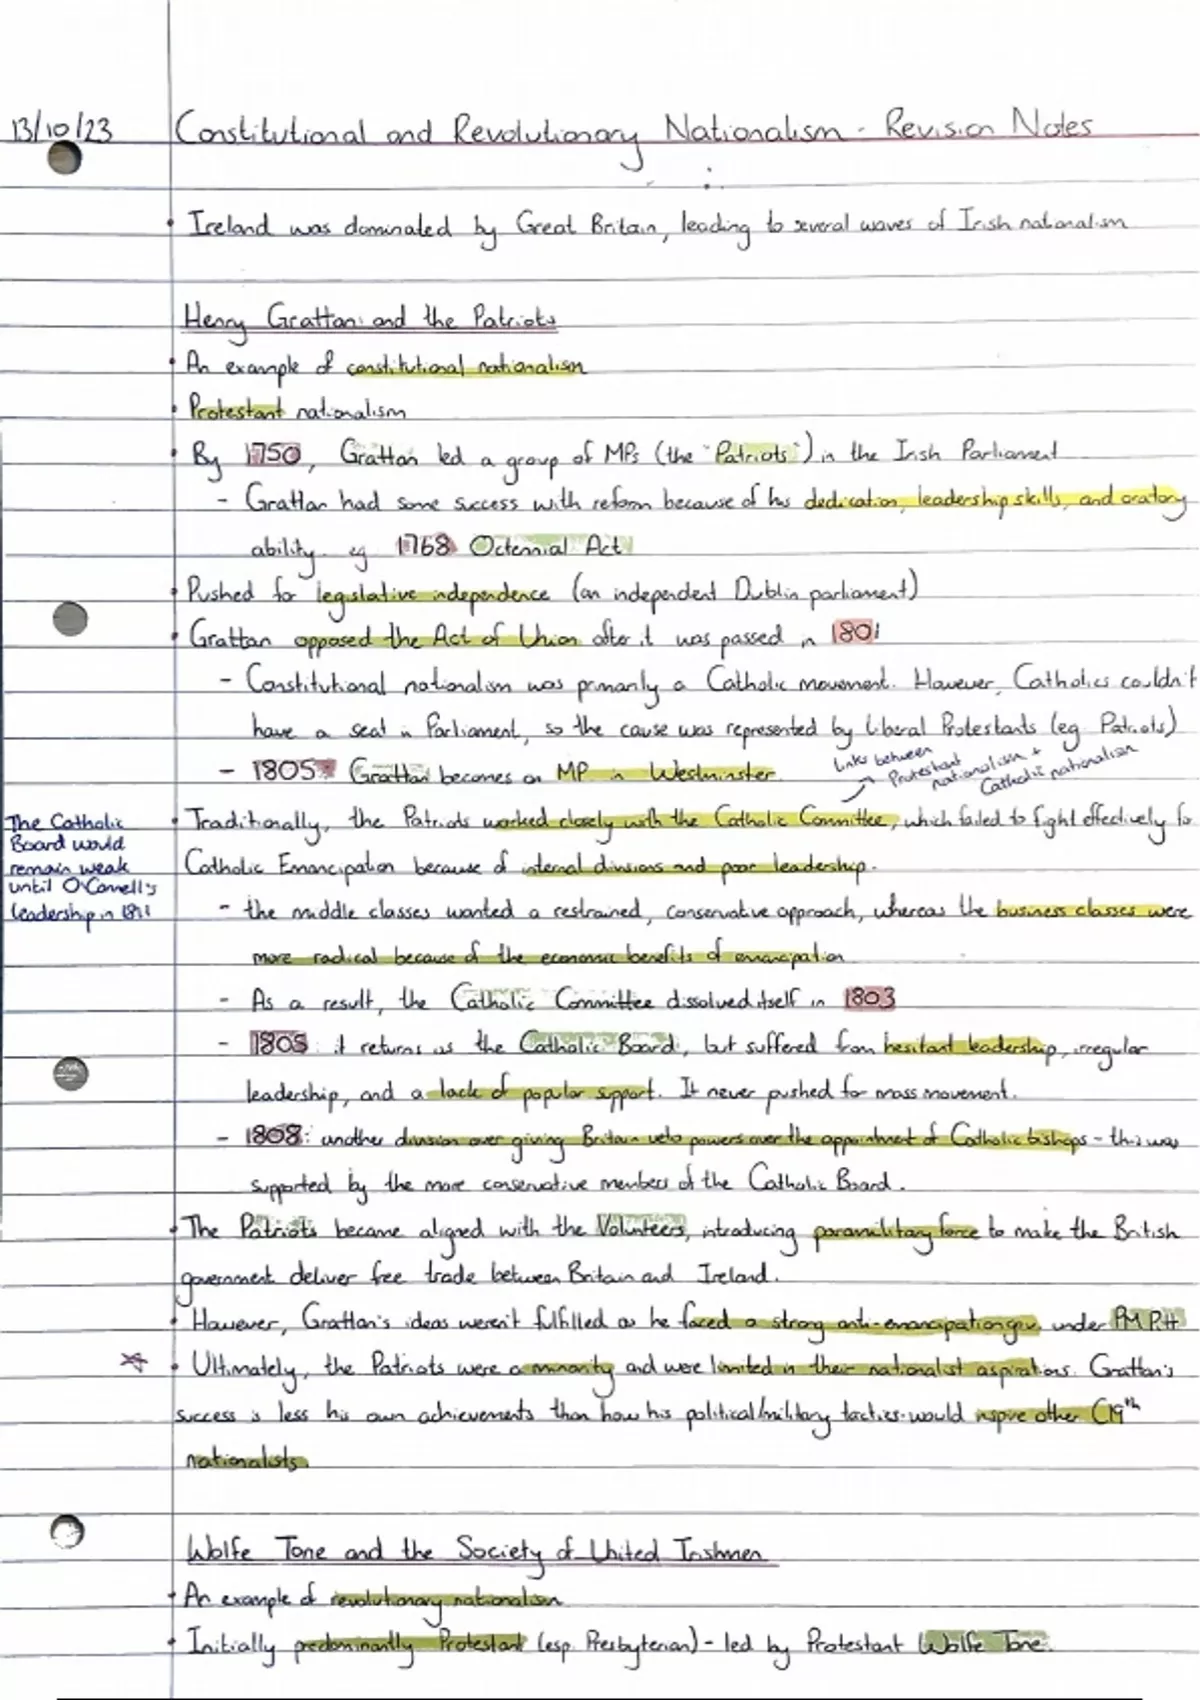 13/10/23 Constitutional and Revolutionary Nationalism - Revision Notes
• Ireland was dominated by Great Britain, leading to several waves of Irish nationalism
Henry Grattan and the Patriots
• An example of constitutional nationalism
• Protestant nationalism
• By 1750, Grattan led a group of MPs (the "Patriots") in the Irish Parliament
- Grattan had some success with reform because of his dedication, leadership skills, and oratory
ability. eg 1768 Octennial Act
• Pushed for legislative independence (an independent Dublin parliament)
• Grattan opposed the Act of Union after it was passed in 1801
- Constitutional nationalism was primarily a Catholic movement. However, Catholics couldn't
have a seat in Parliament, so the cause was represented by Liberal Protestants (eg. Patriots)
- 1805 Grattan becomes an MP in Westminster.
links between
Protestant
nationalism +
Catholic nationalism
The Catholic
Board would
remain weak
until O'Connell's
leadership in 1811
• Traditionally, the Patriots worked closely with the Catholic Committee, which failed to fight effectively for
Catholic Emancipation because of internal divisions and poor leadership.
- the middle classes wanted a restrained, conservative approach, whereas the business classes were
more radical because of the economic benefits of emancipation
- As a result, the Catholic Committee dissolved itself in 1803
- 1805 it returns as the Catholic Board, but suffered from hesitant leadership, irregular
leadership, and a lack of popular support. It never pushed for mass movement.
- 1808: another division over giving Britain veto powers over the appointment of Catholic bishops - this was
supported by the more conservative members of the Catholic Board.
• The Patriots became aligned with the Volunteers, introducing paramilitary force to make the British
government deliver free trade between Britain and Ireland.
• However, Grattan's ideas weren't fulfilled as he faced a strong anti-emancipation gov. under PM Pitt
• Ultimately, the Patriots were a minority and were limited in their nationalist aspirations. Grattan's
success is less his own achievements than how his political/military tactics would inspire other C19th
nationalists.
Wolfe Tone and the Society of United Irishmen
• An example of revolutionary nationalism
• Initially predominantly Protestant (esp. Presbyterian) - led by Protestant Wolfe Tone.